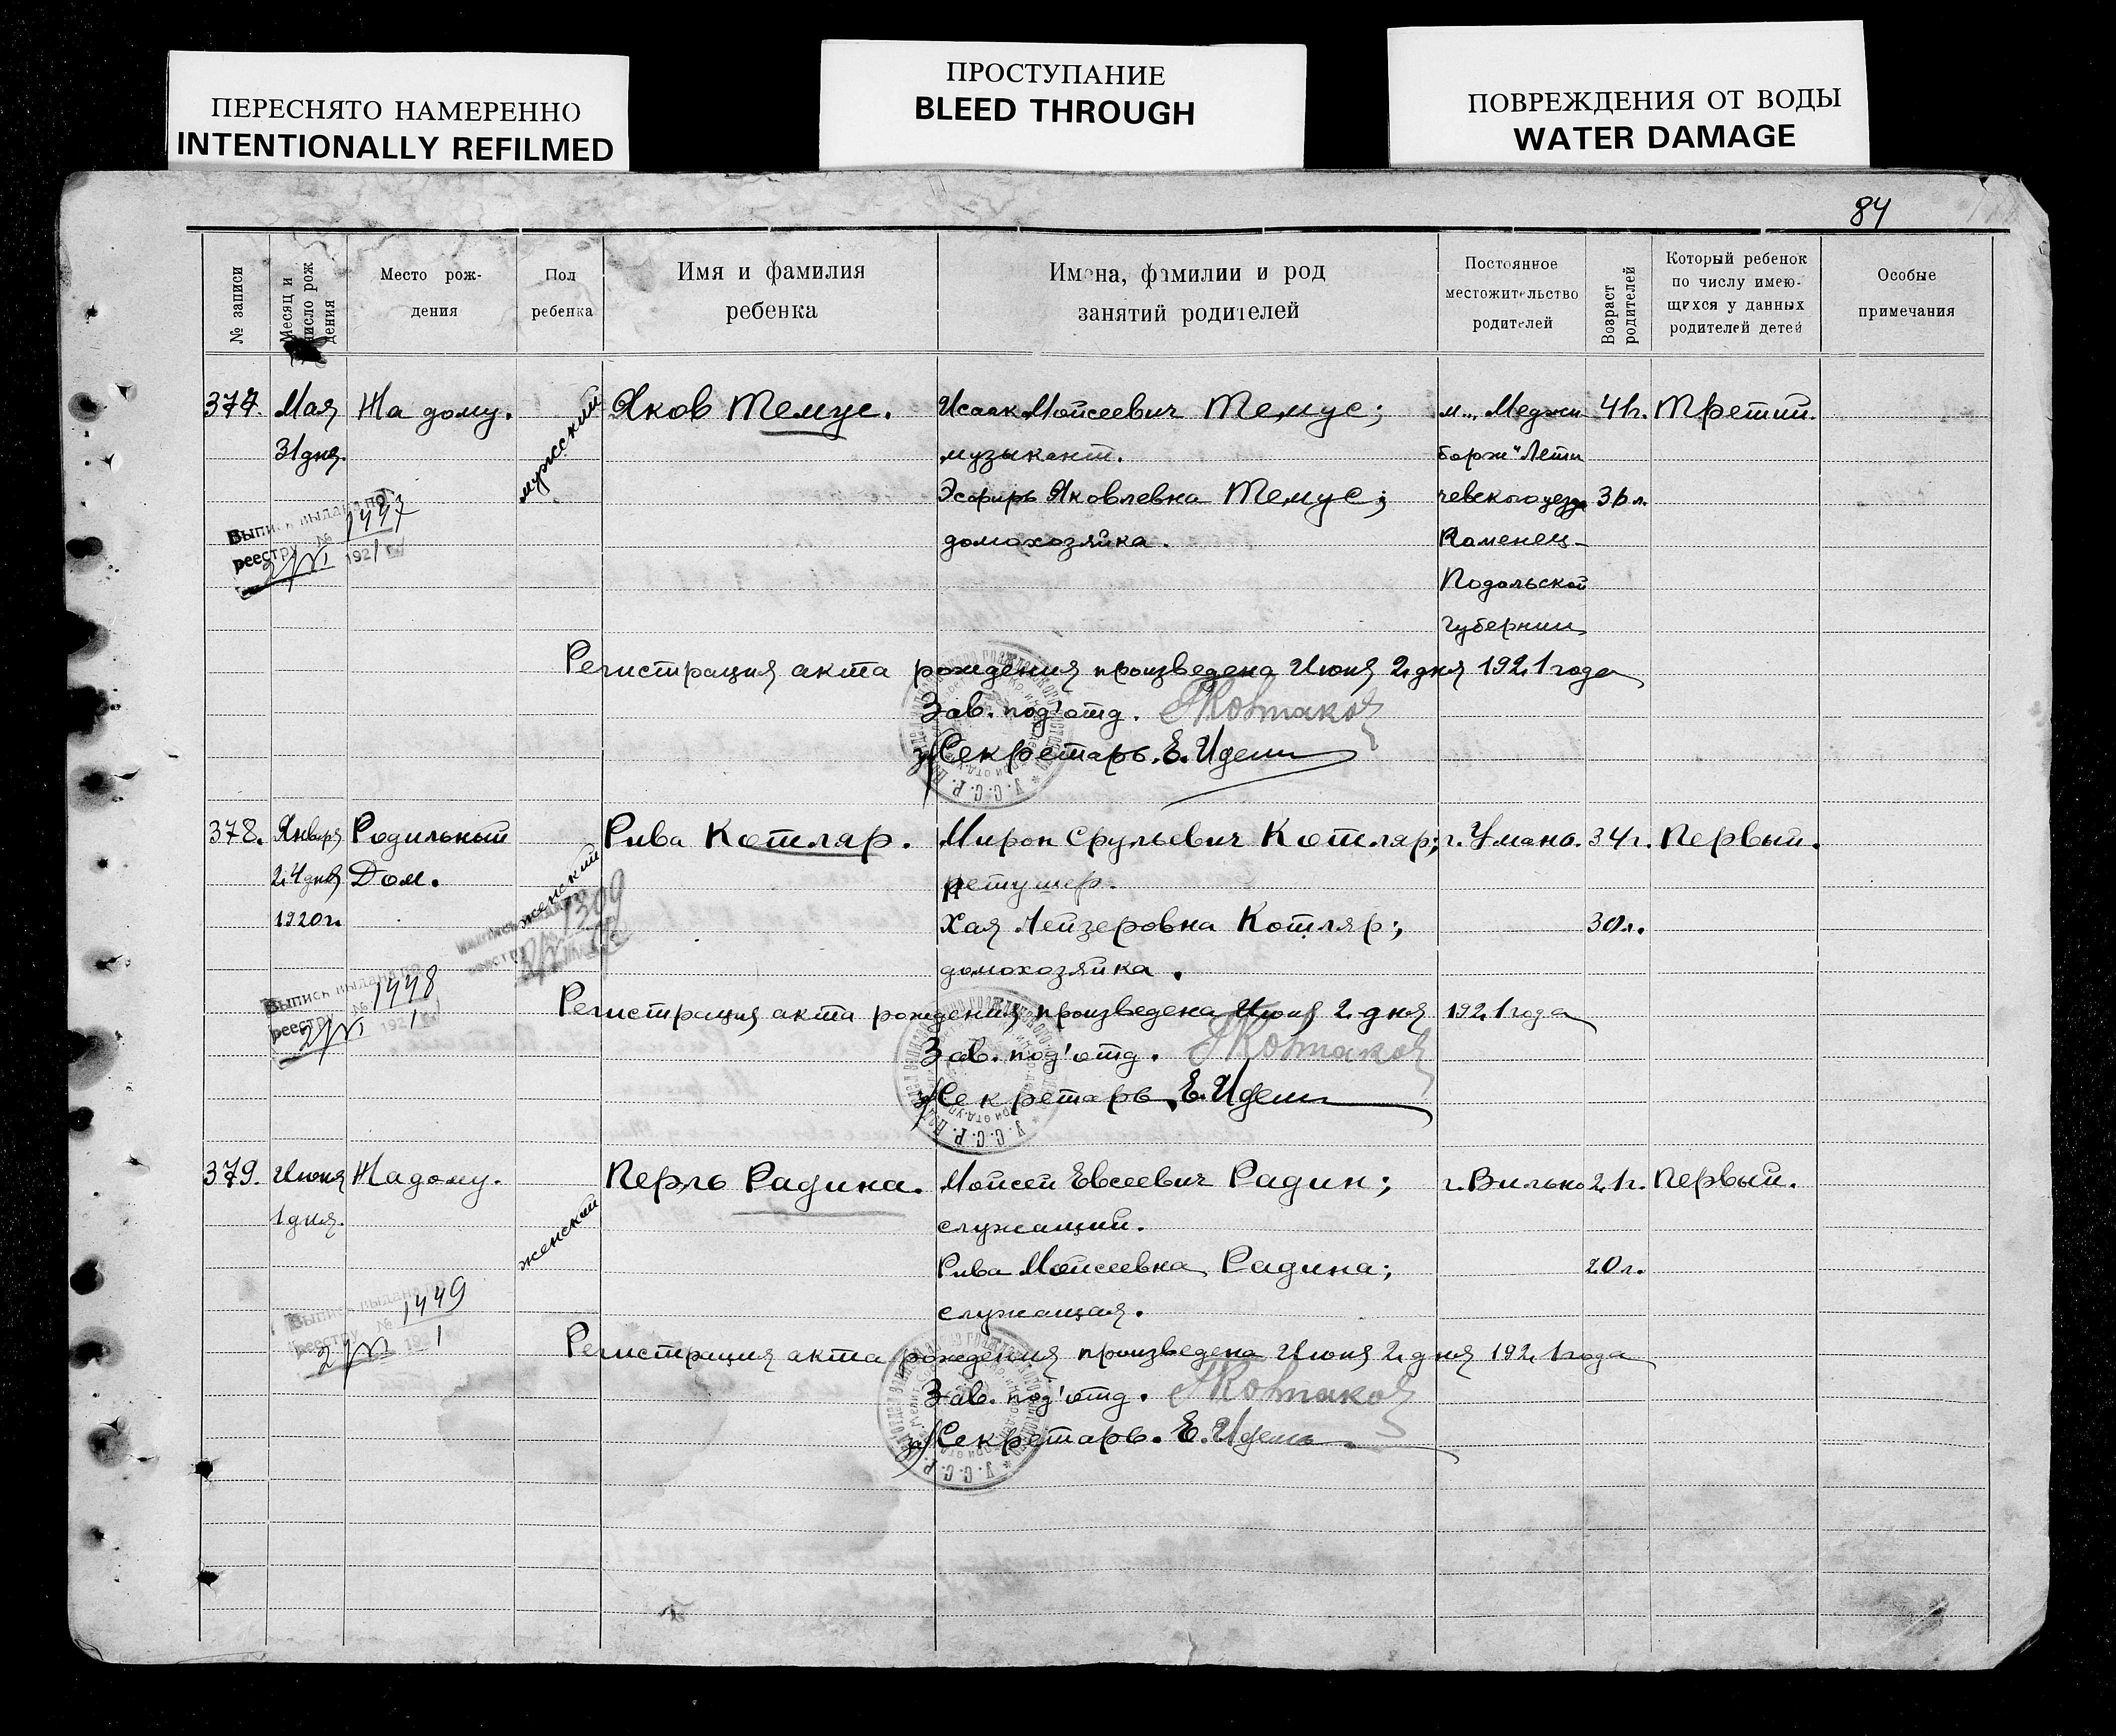 ПЕРЕСНЯТО НАМЕРЕННО
INTENTIONALLY REFILMED
ПРОСТУПАНИЕ
BLEED THROUGH
ПОВРЕЖДЕНИЯ ОТ ВОДЫ
WATER DAMAGE
84
№ записи
Месяц и число рождения
Место рождения
Пол ребенка
Имя и фамилия ребенка
Имена, фамилии и род занятий родителей
Постоянное местожительство родителей
Возраст родителей
Который ребенок по числу имеющихся у данных родителей детей
Особые примечания
377. Мая На дому. мужеский Яков Темус. Исаак Мойсеевич Темус; м. „Меджи 41г. Третий.
31 дня. музыкант. борж" Лети
Эсфирь Яковлевна Темус; чевского уезда 36 л.
домохозяйка. Каменец-
Подольской
губернии
Выпись выдана по
реестру № 1447
2/VI 1921 г.
Регистрация акта рождения произведена Июня 2 дня 1921 года
Зав. под'отд.
Секретарь. Е.
378. Января Родильный женский Рива Котляр. Мирон Срульевич Котляр; г. Умань. 34 г. Первый.
24 дня Дом. ретушер.
1920 г. Хая Лейзеровна Котляр; 30 л.
домохозяйка.
1309
Выпись выдана по
реестру № 1448
2/VI 1921
Регистрация акта рождения произведена Июня 2 дня 1921 года
Зав. под'отд.
Секретарь Е.
379. Июня На дому. женский Перль Радина. Мойсей Евсеевич Радин; г. Вильно 21 г. Первый.
1 дня. служащий.
Рива Мойсеевна Радина; 20 л.
служащая.
Выпись выдана по
реестру № 1449
2/VI 1921
Регистрация акта рождения произведена Июня 2 дня 1921 года
Зав. под'отд.
Секретарь. Е.